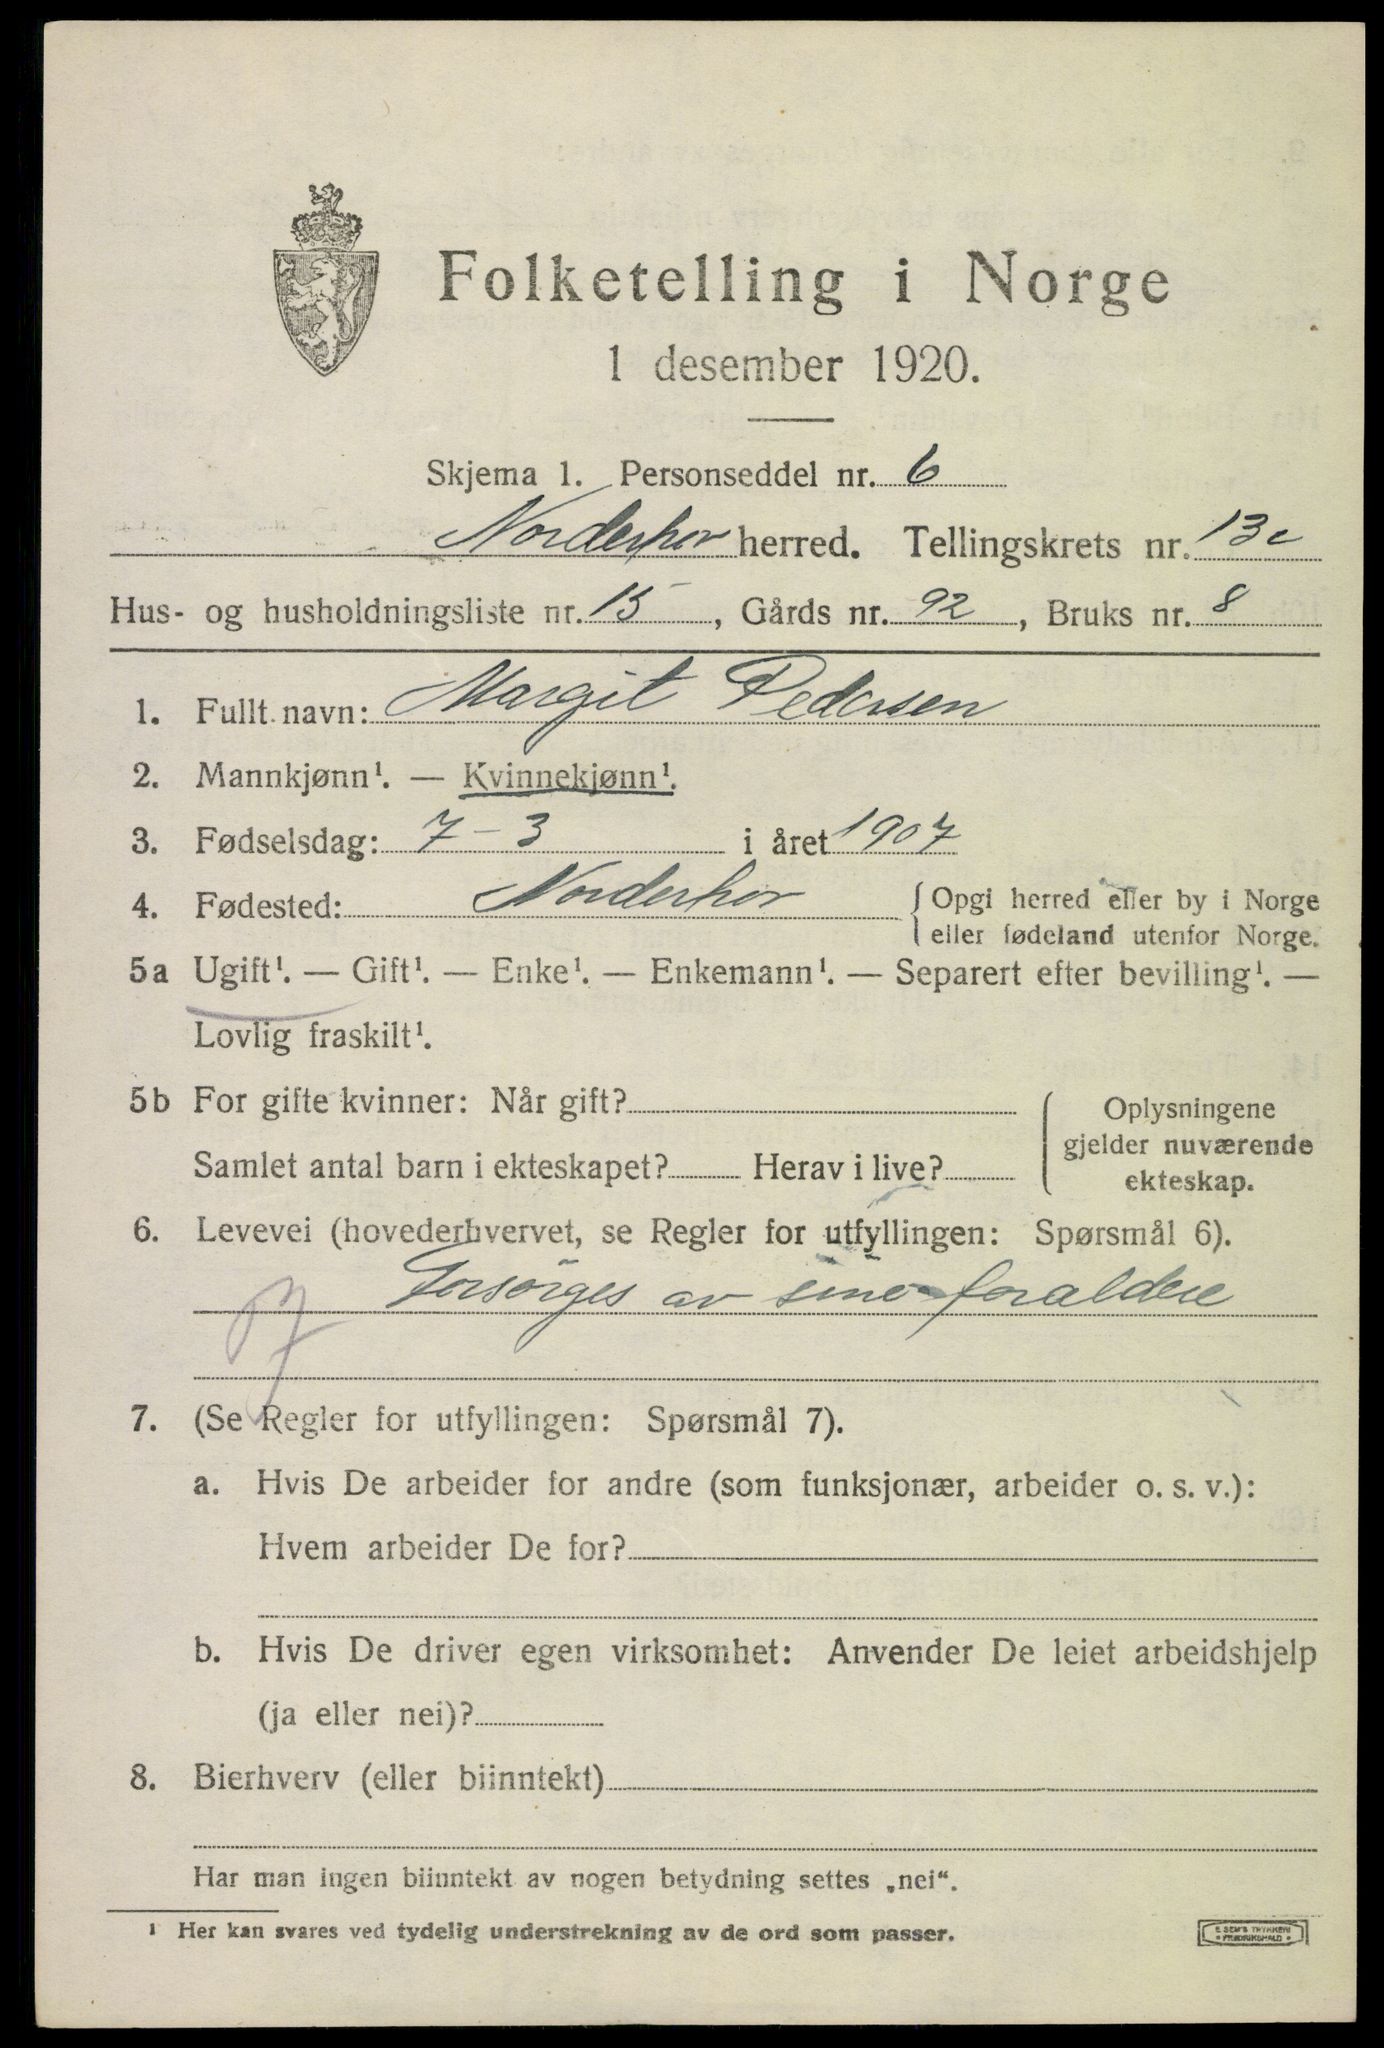 Folketelling i Norge
1 desember 1920.
Skjema 1. Personseddel nr. 6
Norderhov herred. Tellingskrets nr. 13c
Hus- og husholdningsliste nr. 15, Gårds nr. 92, Bruks nr. 8
1. Fullt navn: Margit Pedersen
2. Mannkjønn¹. — Kvinnekjønn¹.
3. Fødselsdag: 7-3 i året 1907
4. Fødested: Norderhov { Opgi herred eller by i Norge
eller fødeland utenfor Norge.
5a Ugift¹. — Gift¹. — Enke¹. — Enkemann¹. — Separert efter bevilling¹. —
Lovlig fraskilt¹.
5b For gifte kvinner: Når gift?
Samlet antal barn i ekteskapet? Herav i live?
{ Oplysningene
gjelder nuværende
ekteskap.
6. Levevei (hovederhvervet, se Regler for utfyllingen: Spørsmål 6).
Forsørges av sine foraldere
7. (Se Regler for utfyllingen: Spørsmål 7).
a. Hvis De arbeider for andre (som funksjonær, arbeider o. s. v.):
Hvem arbeider De for?
b. Hvis De driver egen virksomhet: Anvender De leiet arbeidshjelp
(ja eller nei)?
8. Bierhverv (eller biinntekt)
Har man ingen biinntekt av nogen betydning settes „nei“.
¹ Her kan svares ved tydelig understrekning av de ord som passer.
E SEM'S TRYKKERI
• FREDRIKSHALD •